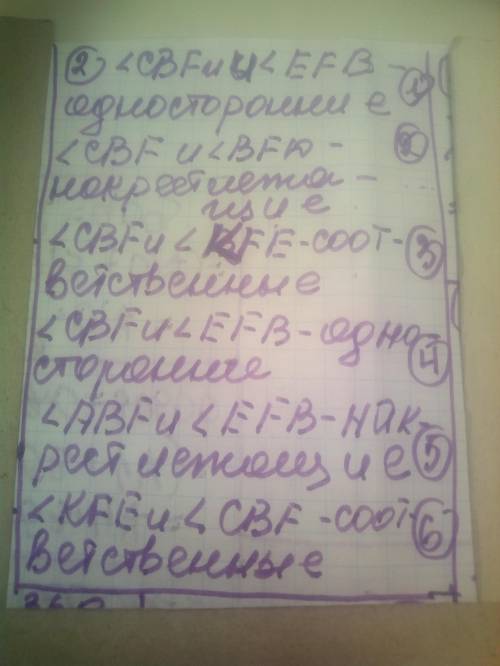 ② <CBF и <EFB - ①
односторонние
<CBF и <BFD - ②
накрест лежа-
щие
<CBF и <KFE - соот- ③
ветственные
<CBF и <EFB - одно- ④
сторонние
<ABF и <EFB - нак-
рест лежащие ⑤
<KFE и < CBF - соот- ⑥
ветственные